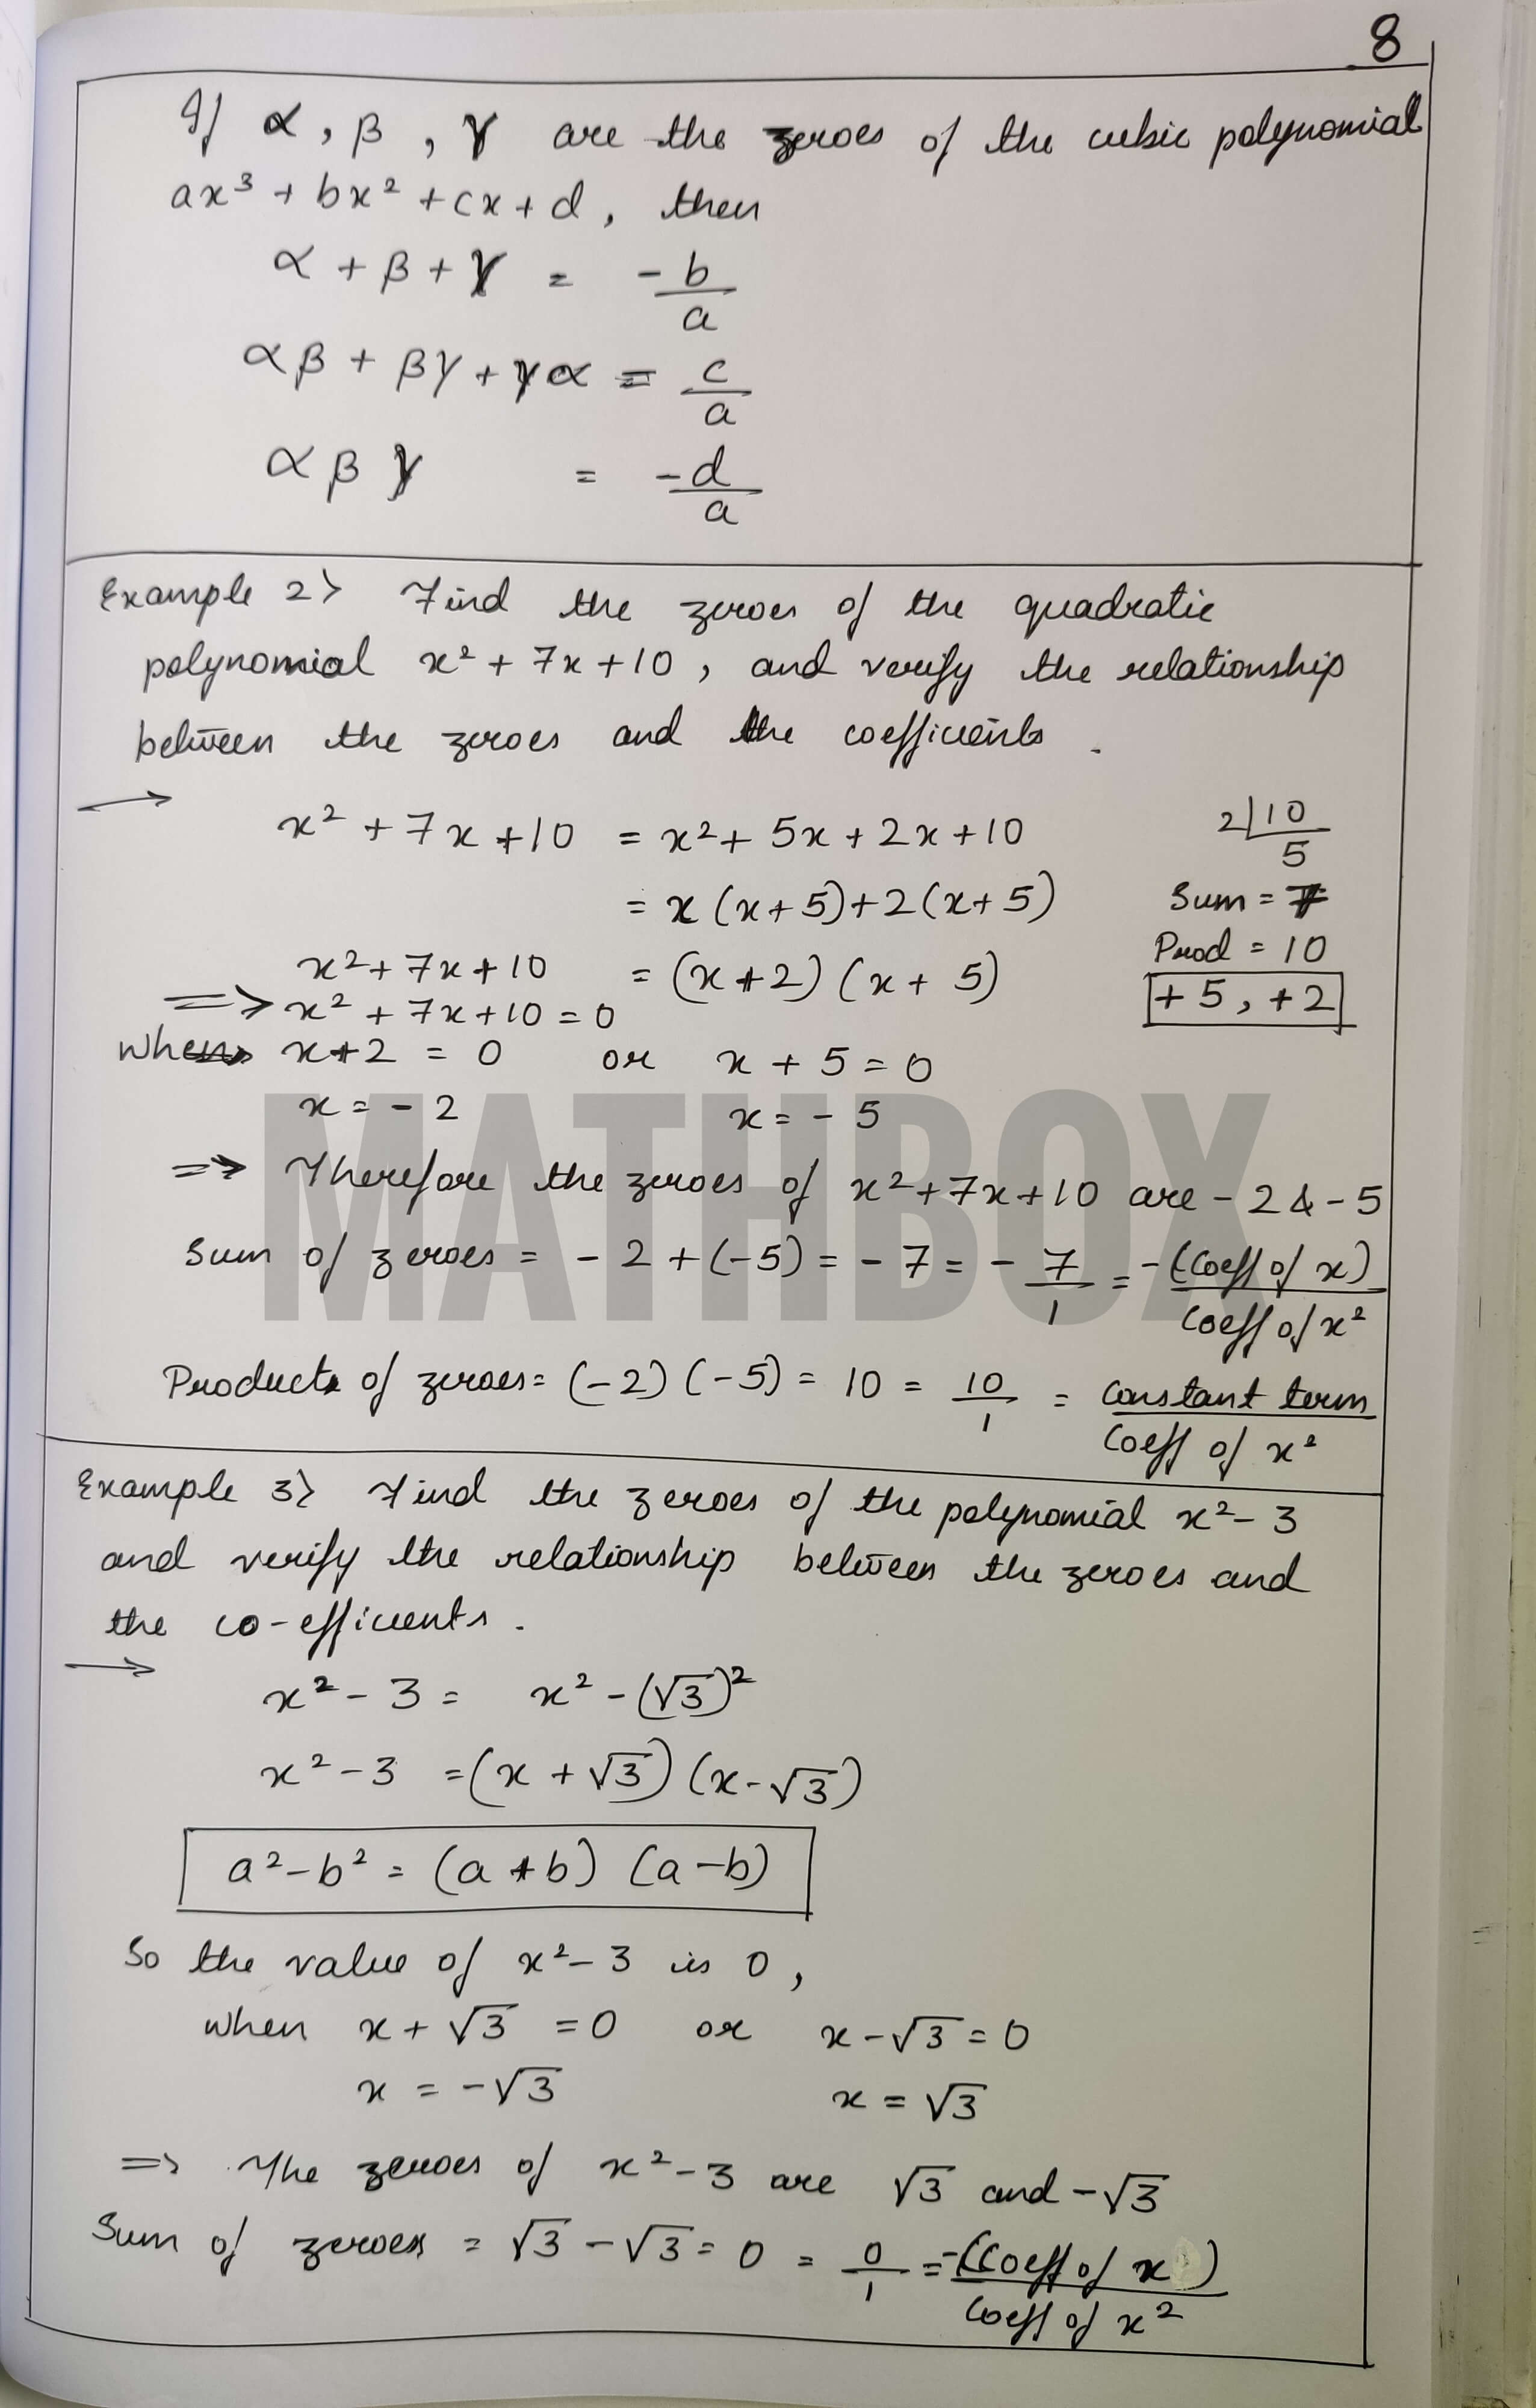 8
If α, β, γ are the zeroes of the cubic polynomial
ax³ + bx² + cx + d, then
α + β + γ = -b/a
αβ + βγ + γα = c/a
αβγ = -d/a
Example 2> Find the zeroes of the quadratic
polynomial x² + 7x + 10, and verify the relationship
between the zeroes and the coefficients.
→
x² + 7x + 10 = x² + 5x + 2x + 10
= x(x+5)+2(x+5)
x² + 7x + 10 = (x+2)(x+5)
2|10
5
Sum = 7
Prod = 10
+5, +2
=> x² + 7x + 10 = 0
when x+2 = 0 or x + 5 = 0
x = -2 x = -5
=> Therefore the zeroes of x²+7x+10 are -2 & -5
Sum of zeroes = -2 + (-5) = -7 = -7/1 = -(Coeff of x)/Coeff of x²
Product of zeroes = (-2)(-5) = 10 = 10/1 = Constant term/Coeff of x²
Example 3> Find the zeroes of the polynomial x²-3
and verify the relationship between the zeroes and
the co-efficients.
→
x² - 3 = x² - (√3)²
x² - 3 = (x + √3)(x - √3)
a² - b² = (a + b)(a - b)
So the value of x² - 3 is 0,
when x + √3 = 0 or x - √3 = 0
x = -√3 x = √3
=> The zeroes of x² - 3 are √3 and -√3
Sum of zeroes = √3 - √3 = 0 = 0/1 = -(Coeff of x)/Coeff of x²
MATHBOX